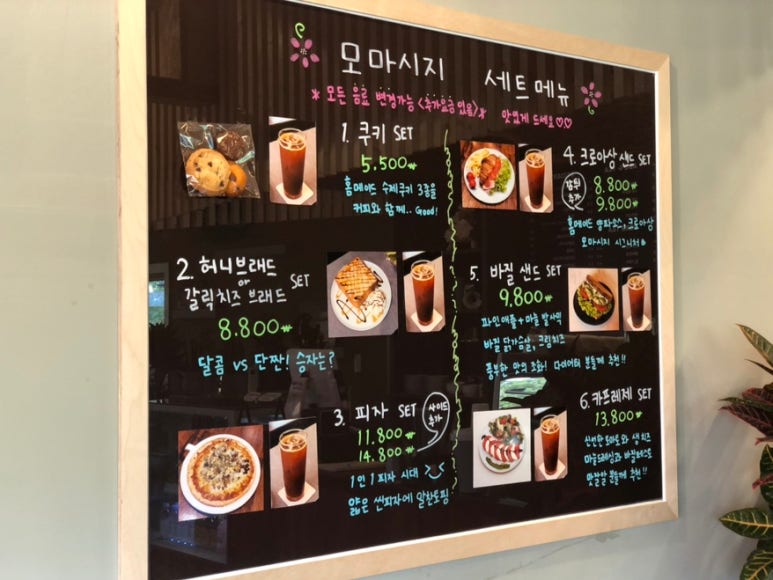 모마시지 세트메뉴
* 모든 음료 변경가능 <추가요금 있음> *
맛있게 드세요♡♡
1. 쿠키 SET
5.500₩
홈메이드 수제쿠키 3종을
커피와 함께.. Good!
2. 허니브래드
or
갈릭치즈 브래드 SET
8.800₩
달콤 vs 단짠! 승자는?
3. 피자 SET
11.800₩
14.800₩
사이드
추가
1인 1피자 시대
얇은 씬피자에 알찬토핑
4. 크로아상 샌드 SET
8.800₩
9.800₩
추가
홈메이드 양파소스, 크로아상
모마시지 시그니처
5. 바질 샌드 SET
9.800₩
파인애플 + 마늘 발사믹
바질 닭가슴살, 크림치즈
풍부한 맛의 조화! 다이어터 분들께 추천!!
6. 카프레제 SET
13.800₩
신선한 토마토와 생치즈
마늘드레싱과 바질페스토
맛잘알 분들께 추천!!